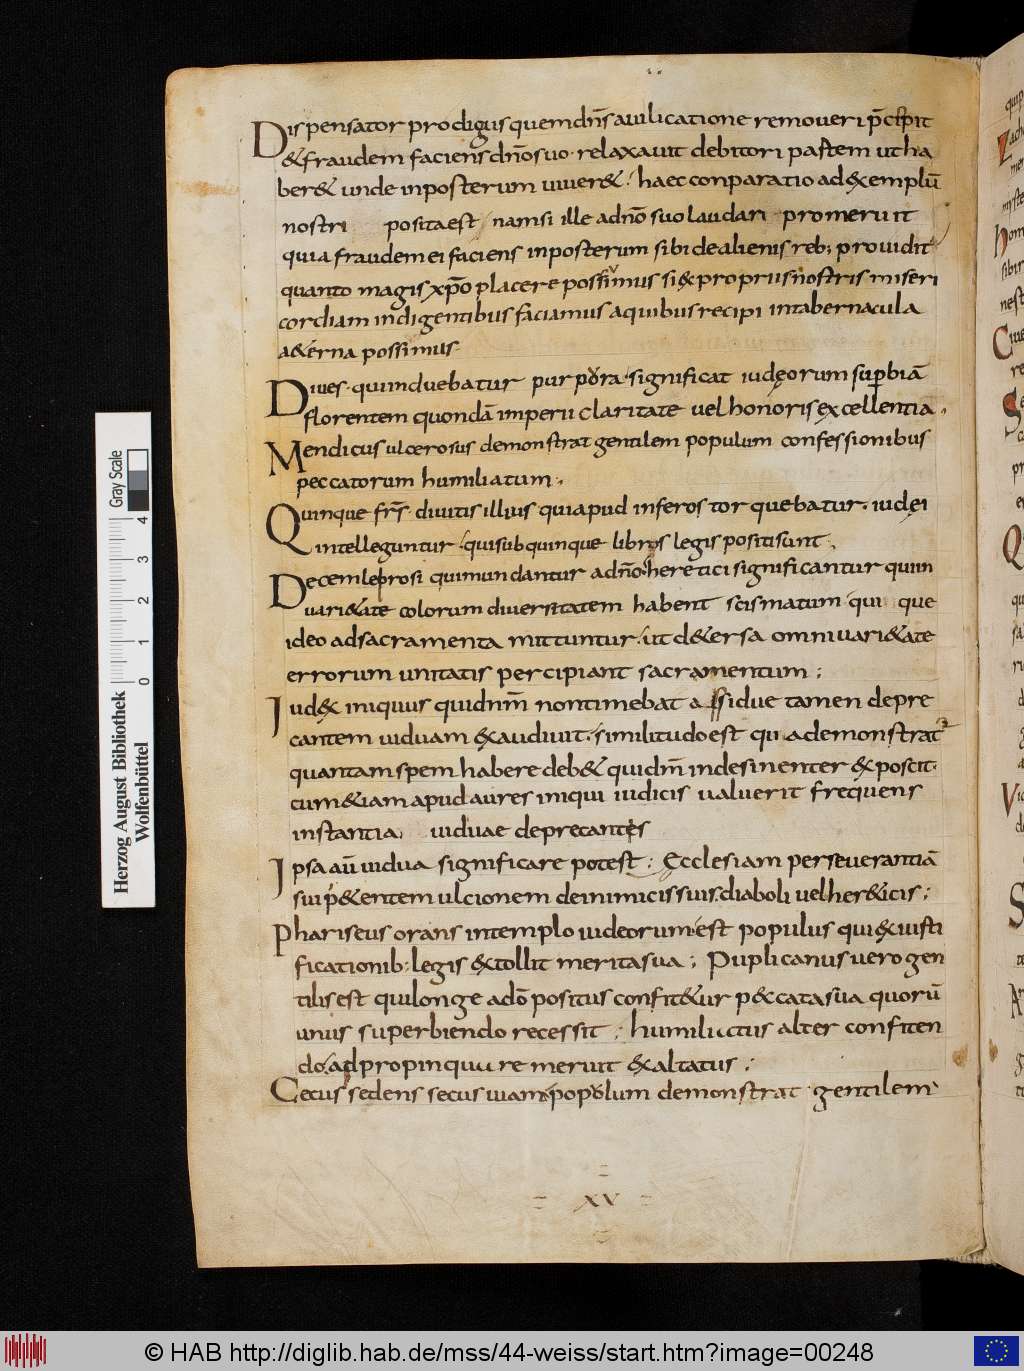 Dispensator prodigus quem dn̄s auilicatione remoueri p̄cipit
& fraudem faciens dn̄o suo · relaxauit debitori partem ut ha
ber& unde inposterum uiuer&; haec conparatio ad exemplū
nostri posita est nam si ille ad nō suo laudari promeruit
quia fraudem ei faciens inposterum sibi de alienis reb; prouidit
quanto magis xp̄o placere possumus si ex propriis nostris miseri
cordiam indigentibus faciamus a quibus recipi in tabernacula
a&erna possimus.
Diues · qui induebatur purpora · significat iudęorum superbiā
florentem quondā imperii claritate uel honoris excellentiā.
Mendicus ulcerosus demonstrat gentilem populum confessionibus
peccatorum humiliatum.
Quinque frs̄ diuitis illius qui apud inferos torquebatur · iudei
intelleguntur · qui sub quinque libros legis positi sunt.
Decem leprosi qui mundantur ad nō · heretici significantur qui in
uari&ate colorum diuersitatem habent scismatum qui que
ideo ad sacramenta mittuntur · ut d&ersa omni uari&ate
errorum unitatis percipiant sacramentum;
Iudex iniquus qui dnm̄ non timebat assidue tamen depre
cantem uiduam exaudiuit · similitudo est qua demonstrat
quantam spem habere deb& qui dm̄ indesinenter exposcit·
cum &iam apud aures iniqui iudicis ualuerit frequens
instantia uiduae deprecantis
Ipsa aū uidua significare potest; Ecclesiam perseuerantiā
sui p&entem ulcionem de inimicis suis diaboli uel her&icis;
Phariseus orans in templo iudeorum · est populus qui ex iusti
ficationib; legis extollit merita sua; Puplicanus uero gen
tilis est qui longe a dō positus confit&ur peccata sua quorū
unus superbiendo recessit; humiliatus alter confiten
do · adpropinquare meruit exaltatus;
Cecus sedens secus uiam populum demonstrat gentilem
XV
Herzog August Bibliothek
Wolfenbüttel
0 1 2 3 4
Gray Scale
© HAB http://diglib.hab.de/mss/44-weiss/start.htm?image=00248